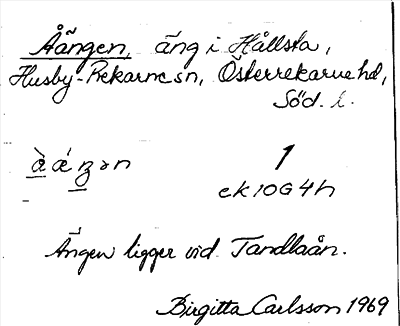 Åängen, äng i Hållsta,
Husby-Rekarne sn, Österrekarne hd,
Söd. l.
å̀ ǽ ŋ ə n 1
ek 10G 4h
Ängen ligger vid Tandlaån.
Birgitta Carlsson 1969